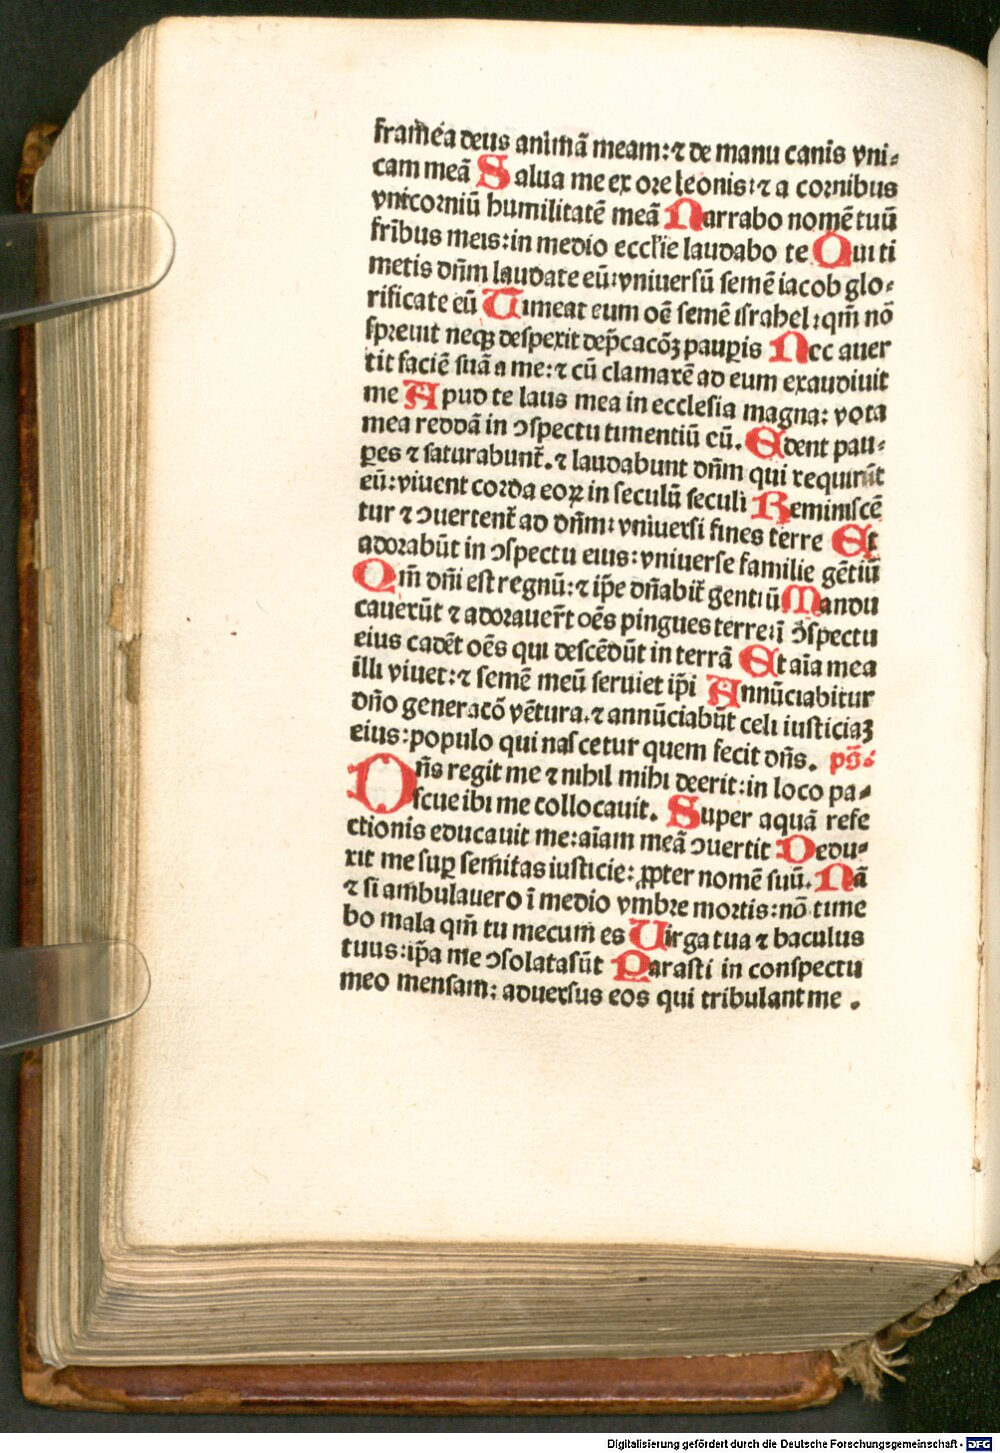 frameā deus animā meam: ⁊ de manu canis vni⸗
cam meā Salua me ex ore leonis: ⁊ a cornibus
vnicorniū humilitatē meā Narrabo nomē tuū
fr̄ibus meis: in medio eccl̄ie laudabo te Qui ti
metis dn̄m laudate eū: vniuersū semē iacob glo⸗
rificate eū Timeat eum oē semē israhel: qm̄ nō
spreuit neqꝫ despexit dep̄cacōꝫ paup̲is Nec auer
tit faciē suā a me: ⁊ cū clamarē ad eum exaudiuit
me Apud te laus mea in ecclesia magna: vota
mea reddā in ↄspectu timentiū eū. Edent pau⸗
ꝑes ⁊ saturabunt̄. ⁊ laudabunt dn̄m qui requirūt
eū: viuent corda eoꝝ in seculū seculi Reminiscē
tur ⁊ ↄuertent̄ ad dn̄m: vniuersi fines terre Et
adorabūt in ↄspectu eius: vniuerse familie gētiū
Qm̄ dn̄i est regnū: ⁊ ip̄e dn̄abit̄ gentiū Mandu
cauerūt ⁊ adorauer̄t oēs pingues terre: ī ↄspectu
eius cadēt oēs qui descēdūt in terrā Et aīa mea
illi viuet: ⁊ semē meū seruiet ip̄i Annūciabitur
dn̄o generacō vētura. ⁊ annūciabūt celi iusticiaꝫ
eius: populo qui nascetur quem fecit dn̄s. ps̄.
Dn̄s regit me ⁊ nihil mihi deerit: in loco pa⸗
scue ibi me collocauit. Super aquā refe
ctionis educauit me: aīam meā ↄuertit Dedu⸗
xit me suꝑ semitas iusticie: ꝓpter nomē suū. Nā
⁊ si ambulauero ī medio vmbre mortis: nō time
bo mala qm̄ tu mecum es Uirga tua ⁊ baculus
tuus: ip̄a me ↄsolata sūt Parasti in conspectu
meo mensam: aduersus eos qui tribulant me .
Digitalisierung gefördert durch die Deutsche Forschungsgemeinschaft - DFG